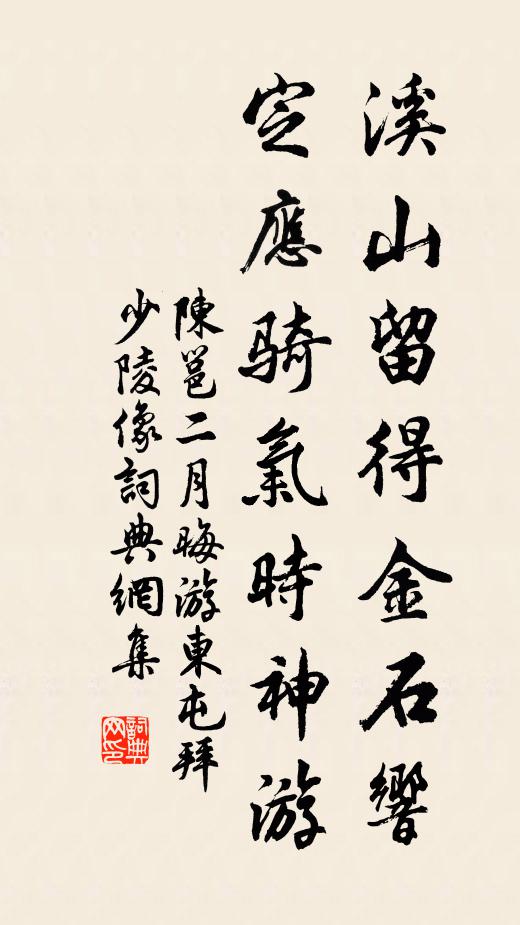 溪山留得金石響
定應騎氣時神游
陳邕二月晦游東屯拜
少陵像詞典網集
詞典
网印